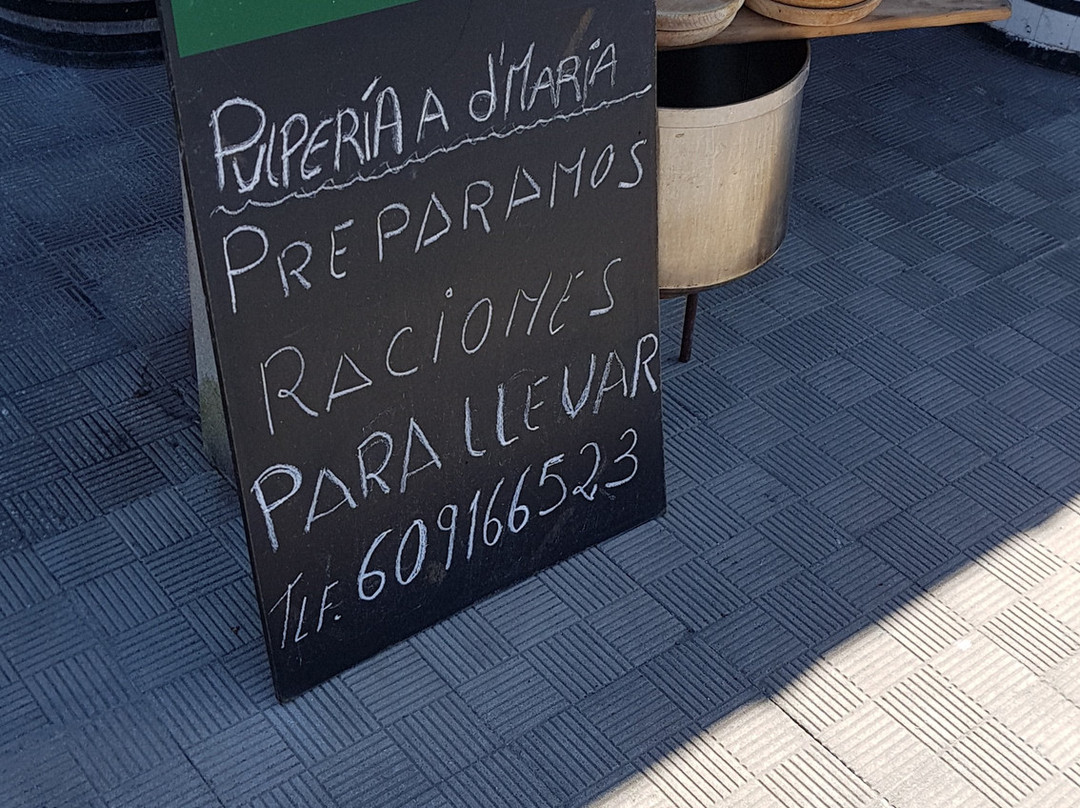 PULPERÍA A d'MARÍA
PREPARAMOS
RACIONES
PARA LLEVAR
TLF. 609166523